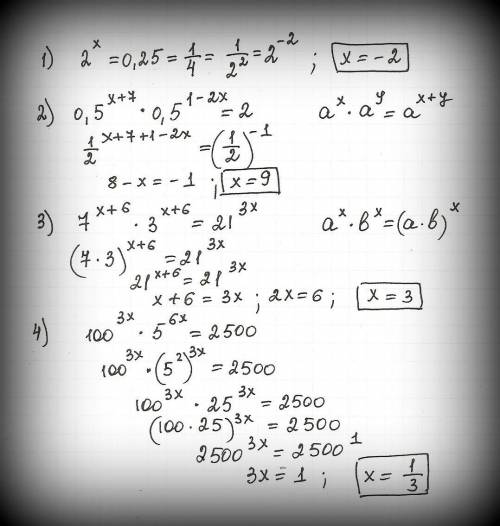 1) 2^x = 0,25 = 1/4 = 1/2^2 = 2^-2 ; x = -2
2) 0,5^(x+7) · 0,5^(1-2x) = 2 a^x · a^y = a^(x+y)
1/2^(x+7+1-2x) = (1/2)^-1
8 - x = -1 ; x = 9
3) 7^(x+6) · 3^(x+6) = 21^(3x) a^x · b^x = (a·b)^x
(7·3)^(x+6) = 21^(3x)
21^(x+6) = 21^(3x)
x + 6 = 3x ; 2x = 6 ; x = 3
4) 100^(3x) · 5^(6x) = 2500
100^(3x) · (5^2)^(3x) = 2500
100^(3x) · 25^(3x) = 2500
(100 · 25)^(3x) = 2500
2500^(3x) = 2500^1
3x = 1 ; x = 1/3